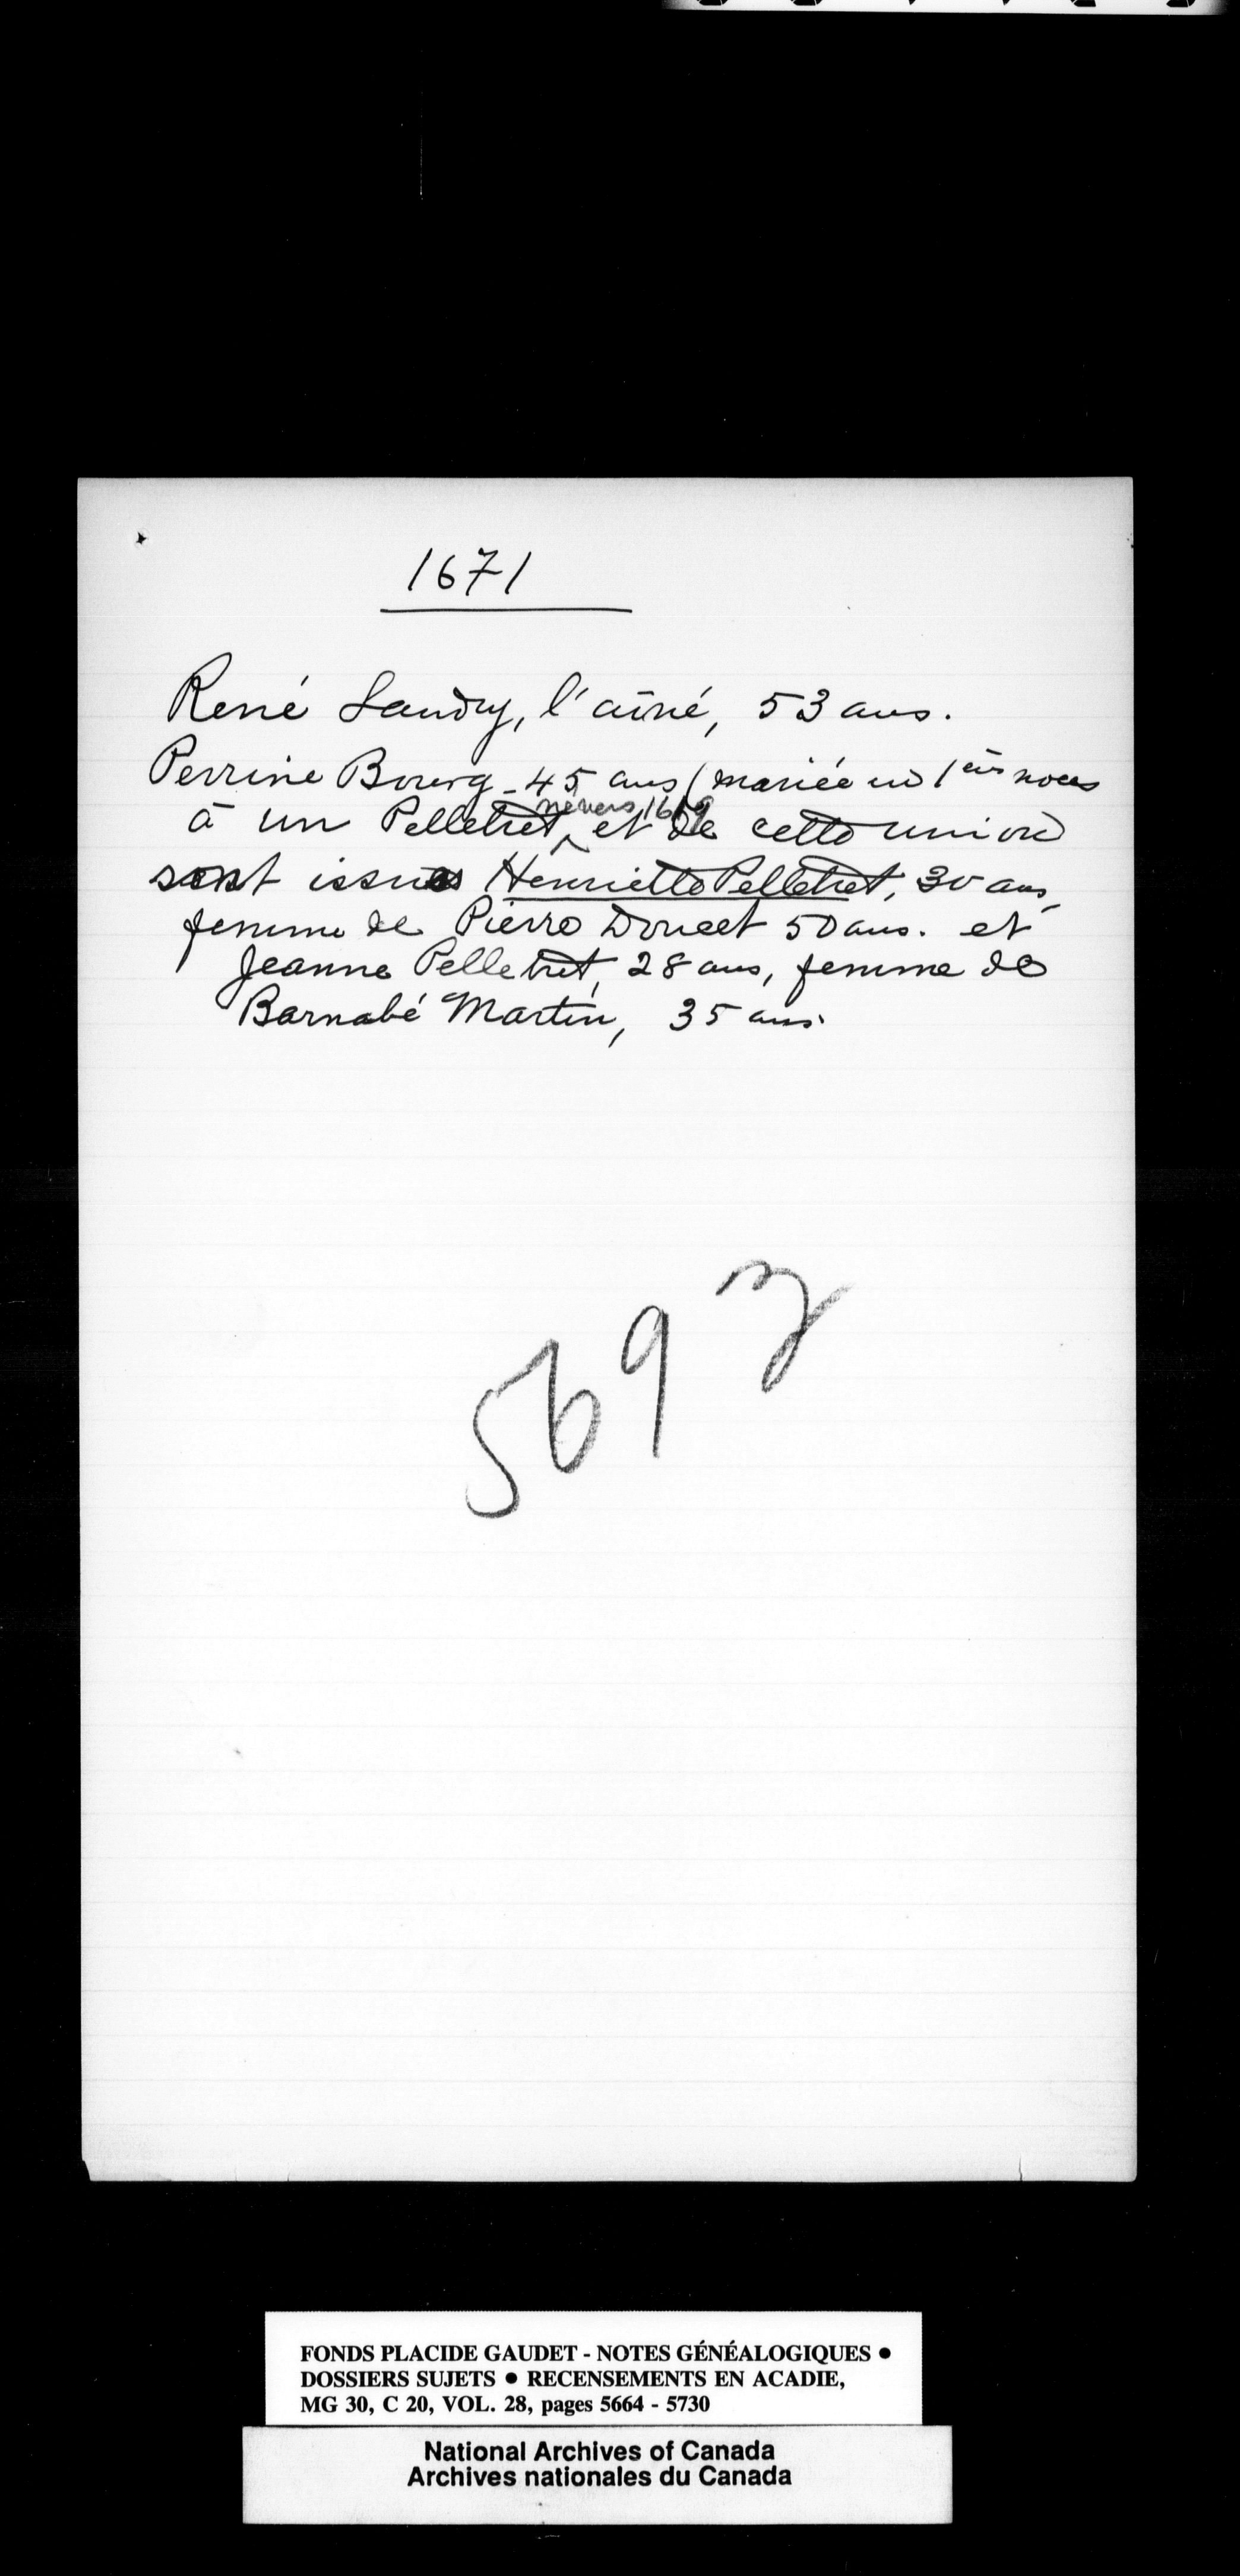 1671
René Landry, l'aîné, 53 ans.
Perrine Bourg - 45 ans (mariée en 1ères noces
né vers 1619
à un Pelletret et de cette union
sont issues Henriette Pelletret, 30 ans,
femme de Pierre Doucet 50 ans. et
Jeanne Pelletret, 28 ans, femme de
Barnabé Martin, 35 ans.
569
FONDS PLACIDE GAUDET - NOTES GÉNÉALOGIQUES ●
DOSSIERS SUJETS ● RECENSEMENTS EN ACADIE,
MG 30, C 20, VOL. 28, pages 5664 - 5730
National Archives of Canada
Archives nationales du Canada